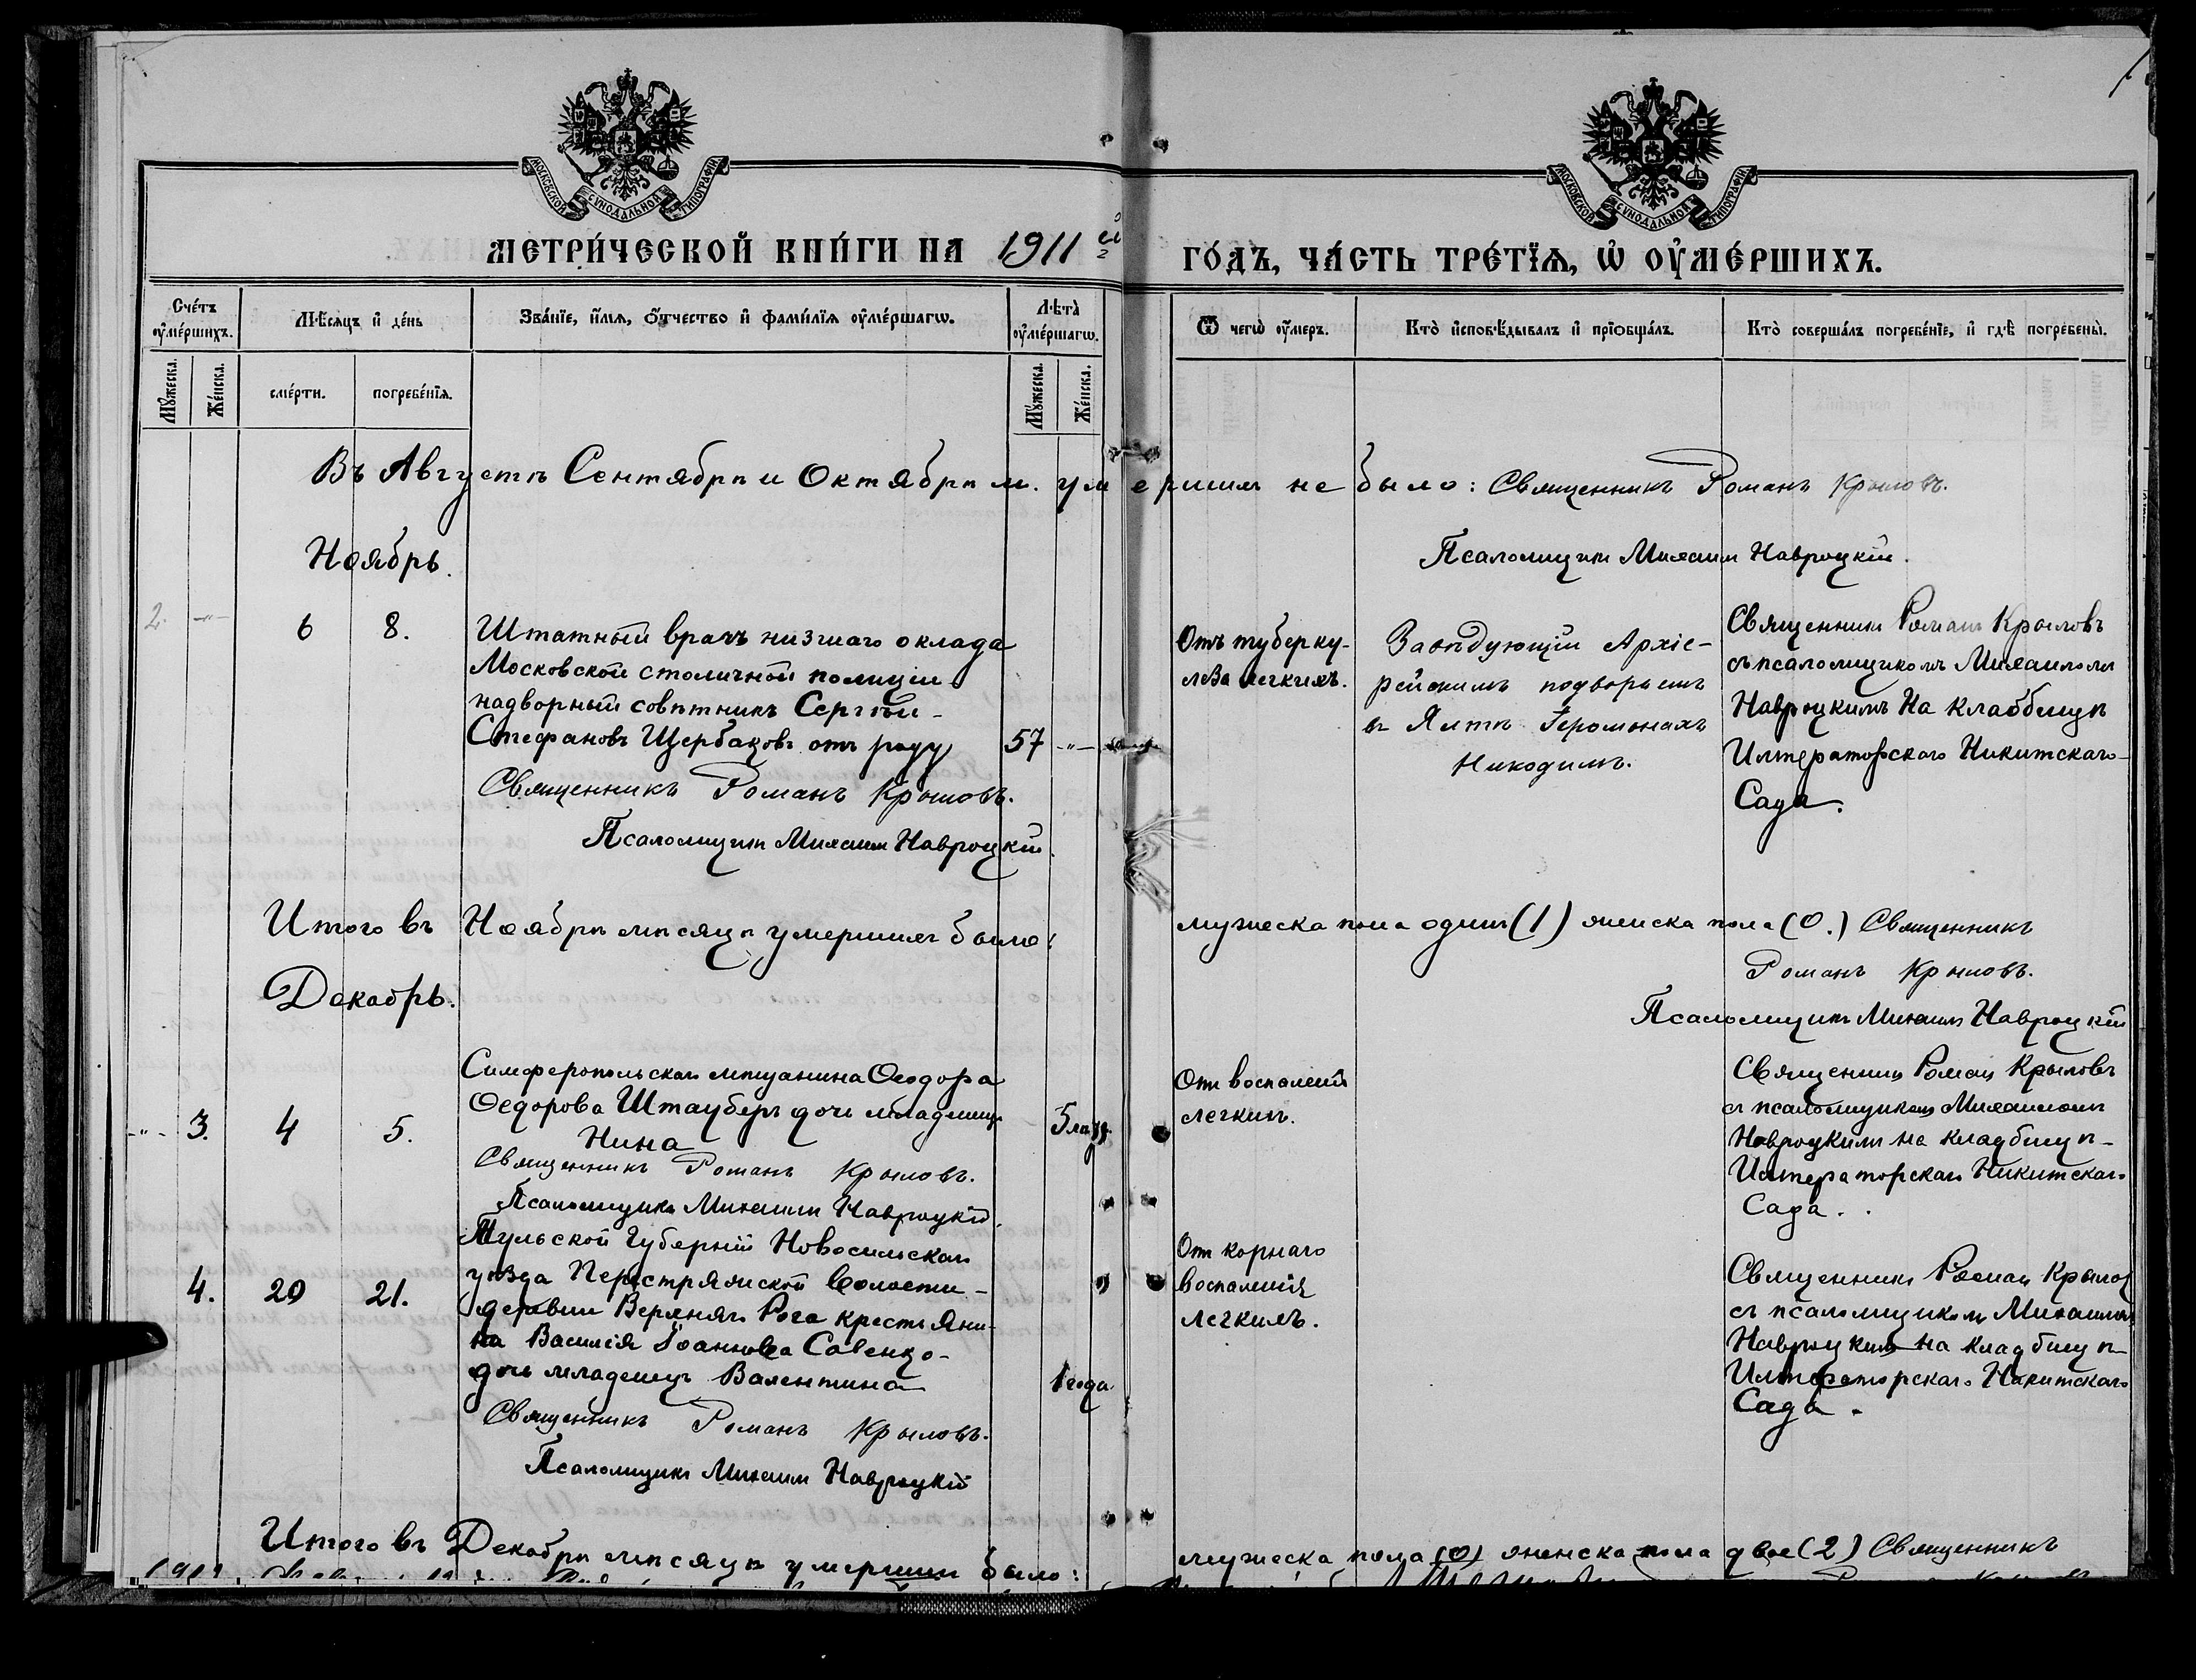 МОСКОВСКОЙ СѴНОДАЛЬНОЙ ТИПОГРАФІИ
МОСКОВСКОЙ СѴНОДАЛЬНОЙ ТИПОГРАФІИ
МЕТРИ́ЧЕСКОЙ КНИ́ГИ НА 1911 й
ГО́ДЪ, ЧА́СТЬ ТРЕ́ТЇѦ, Ѡ҆ ОУ҆МЕ́РШИХЪ.
Сче́тъ оу҆ме́ршихъ.
Мѣ́сѧцъ и҆ де́нь
Зва́нїе, и҆́мѧ, ѻ҆́тчество и҆ фами́лїѧ оу҆ме́ршагѡ.
Лѣ́та оу҆ме́ршагѡ.
Ѿ чегѡ̀ оу҆́меръ.
Кто̀ и҆сповѣ́дывалъ и҆ прїѡбща́лъ.
Кто̀ соверша́лъ погребе́нїе, и҆ гдѣ̀ погребены̀.
Мꙋ́жеска.
Же́нска.
сме́рти.
погребе́нїѧ.
Мꙋ́жеска.
Же́нска.
Въ Августѣ Сентябрѣ и Октябрѣ м. умершихъ не было: Священникъ Романъ Крыловъ.
Ноябрь.
Псаломщикъ Михаилъ Навроцкій.
2. -"- 6 8.
Штатный врачъ низшаго оклада
Московской столичной полиціи
надворный совѣтникъ Сергѣй
Стефановъ Щербаковъ отъ роду 57 -"-
Священникъ Романъ Крыловъ.
Псаломщикъ Михаилъ Навроцкій.
Отъ туберку-
леза легкихъ.
Завѣдующій Архіе-
рейскимъ подворьемъ
въ Ялтѣ Іеромонахъ
Никодимъ.
Священникъ Романъ Крыловъ
съ псаломщикомъ Михаиломъ
Навроцкимъ На кладбищѣ
Императорскаго Никитскаго
Сада.
Итого въ Ноябрѣ мѣсяцѣ умершихъ было:
мужеска пола одинъ (1) женска пола (0.) Священникъ
Романъ Крыловъ.
Декабрь.
Псаломщикъ Михаилъ Навроцкій
-"- 3. 4 5.
Симферопольскаго мѣщанина Ѳеодора
Ѳедорова Штауберъ дочь младенецъ
Нина
Священникъ Романъ Крыловъ.
Псаломщикъ Михаилъ Навроцкій.
Отъ воспаленія
легкихъ.
Священникъ Романъ Крыловъ
съ псаломщикомъ Михаиломъ
Навроцкимъ на кладбищѣ
Императорскаго Никитскаго
Сада.
4. 20 21.
Тульской Губерніи Новосильскаго
уѣзда волости
деревни крестьяни-
на Василія Іоаннова Савенко
дочь младенецъ Валентина
1 года.
Священникъ Романъ Крыловъ.
Псаломщикъ Михаилъ Навроцкій
От корнаго
воспаленія
легкихъ.
Священникъ Романъ Крыловъ
съ псаломщикомъ Михаиломъ
Навроцкимъ на кладбищѣ
Императорскаго Никитскаго
Сада.
Итого въ Декабрѣ мѣсяцѣ умершихъ было:
мужеска пола (0) женска пола двое (2) Священникъ